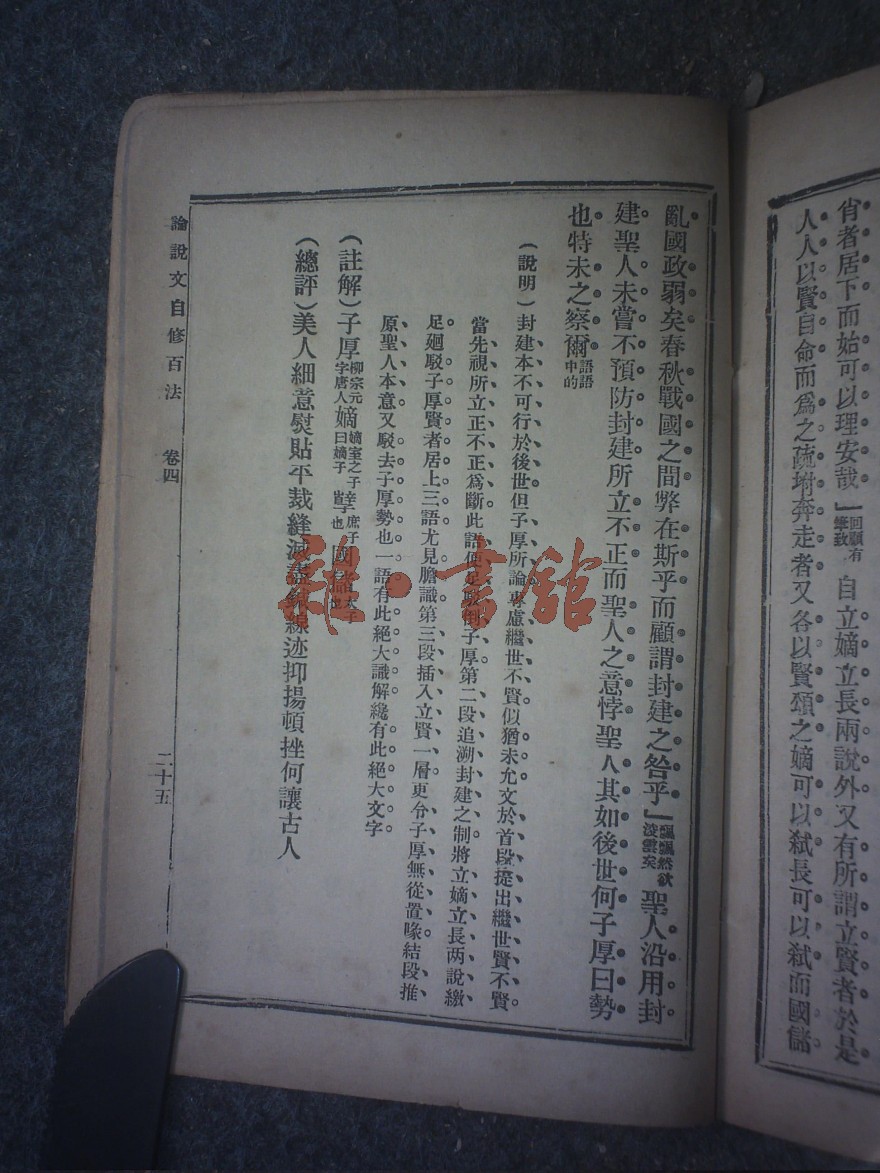 肖者居下而始可以理安哉」回顧有筆致自立嫡立長兩說外又有所謂立賢者於是
人人以賢自命而爲之疏坿奔走者又各以賢頌之嫡可以弒長可以弒而國儲
亂國政弱矣春秋戰國之間弊在斯乎而顧謂封建之咎乎」飄飄然欲淩雲矣聖人沿用封
建聖人未嘗不預防封建所立不正而聖人之意悖聖人其如後世何子厚曰勢
也特未之察爾語語中的
(說明)封建本不可行於後世但子厚所論專慮繼世不賢似猶未允文於首段提出繼世賢不賢
當先視所立正不正爲斷此語便足駁倒子厚第二段追溯封建之制將立嫡立長两說繳
足廻駁子厚賢者居上三語尤見膽識第三段插入立賢一層更令子厚無從置喙結段推
原聖人本意又駁去子厚勢也一語有此絕大識解纔有此絕大文字
(註解)子厚柳宗元字唐人嫡嫡室之子曰嫡子孼庶子也國儲太子也
(總評)美人細意熨貼平裁縫減盡鍼線迹抑揚頓挫何讓古人
論說文自修百法 卷四
二十五
雜·書館